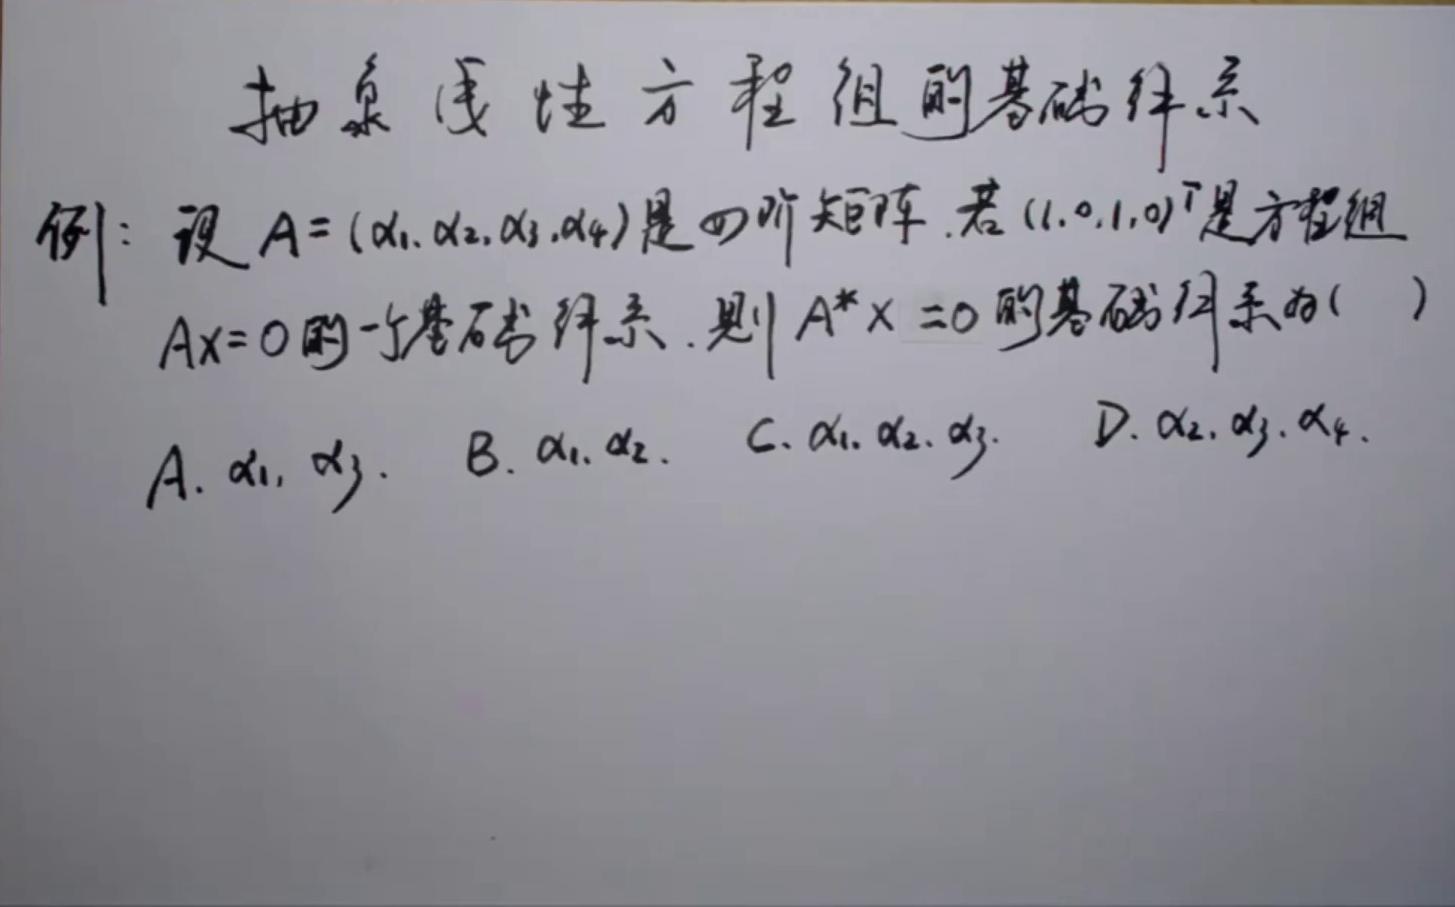 抽象线性方程组的基础解系
例: 设 A=(α₁,α₂,α₃,α₄)是四阶矩阵.若(1,0,1,0)ᵀ是方程组
Ax=0的一个基础解系.则A*x=0的基础解系为( )
A. α₁, α₃. B. α₁, α₂. C. α₁, α₂, α₃. D. α₂, α₃, α₄.